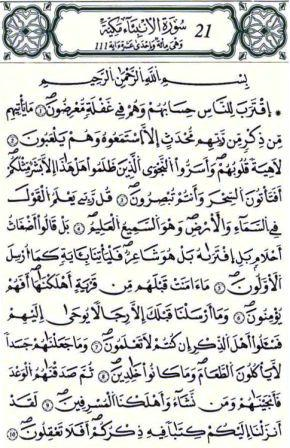 21 سُورَةُ الْأَنْبِيَاءِ مَكِيَّةٌ
وَهِيَ مِائَةٌ وَإِحْدَى عَشْرَةَ آيَةً 111
بِسْمِ اللَّهِ الرَّحْمَنِ الرَّحِيمِ
اِقْتَرَبَ لِلنَّاسِ حِسَابُهُمْ وَهُمْ فِي غَفْلَةٍ مُّعْرِضُونَ ① مَا يَأْتِيهِم
مِّن ذِكْرٍ مِّن رَّبِّهِم مُّحْدَثٍ إِلَّا اَسْتَمَعُوهُ وَهُمْ يَلْعَبُونَ ②
لَاهِيَةً قُلُوبُهُمْ وَأَسَرُّوا النَّجْوَى الَّذِينَ ظَلَمُوا هَلْ هَذَا إِلَّا بَشَرٌ مِّثْلُكُمْ
أَفَتَأْتُونَ السِّحْرَ وَأَنتُمْ تُبْصِرُونَ ③ قُل رَّبِّي يَعْلَمُ الْقَوْلَ
فِي السَّمَاءِ وَالْأَرْضِ وَهُوَ السَّمِيعُ الْعَلِيمُ ④ بَلْ قَالُوا أَضْغَاثُ
أَحْلَامٍ بَلِ افْتَرَاهُ بَلْ هُوَ شَاعِرٌ فَلْيَأْتِنَا بِآيَةٍ كَمَا أُرْسِلَ
الْأَوَّلُونَ ⑤ مَا آمَنَتْ قَبْلَهُم مِّن قَرْيَةٍ أَهْلَكْنَاهَا أَفَهُمْ
يُؤْمِنُونَ ⑥ وَمَا أَرْسَلْنَا قَبْلَكَ إِلَّا رِجَالًا يُوحَى إِلَيْهِمْ
فَسْـَٔلُوا أَهْلَ الذِّكْرِ إِن كُنتُمْ لَا تَعْلَمُونَ ⑦ وَمَا جَعَلْنَاهُمْ جَسَدًا
لَّا يَأْكُلُونَ الطَّعَامَ وَمَا كَانُوا خَالِدِينَ ⑧ ثُمَّ صَدَقْنَاهُمُ الْوَعْدَ
فَأَنجَيْنَاهُمْ وَمَن نَّشَاءُ وَأَهْلَكْنَا الْمُسْرِفِينَ ⑨ لَقَدْ
أَنزَلْنَا إِلَيْكُمْ كِتَابًا فِيهِ ذِكْرُكُمْ أَفَلَا تَعْقِلُونَ ⑩